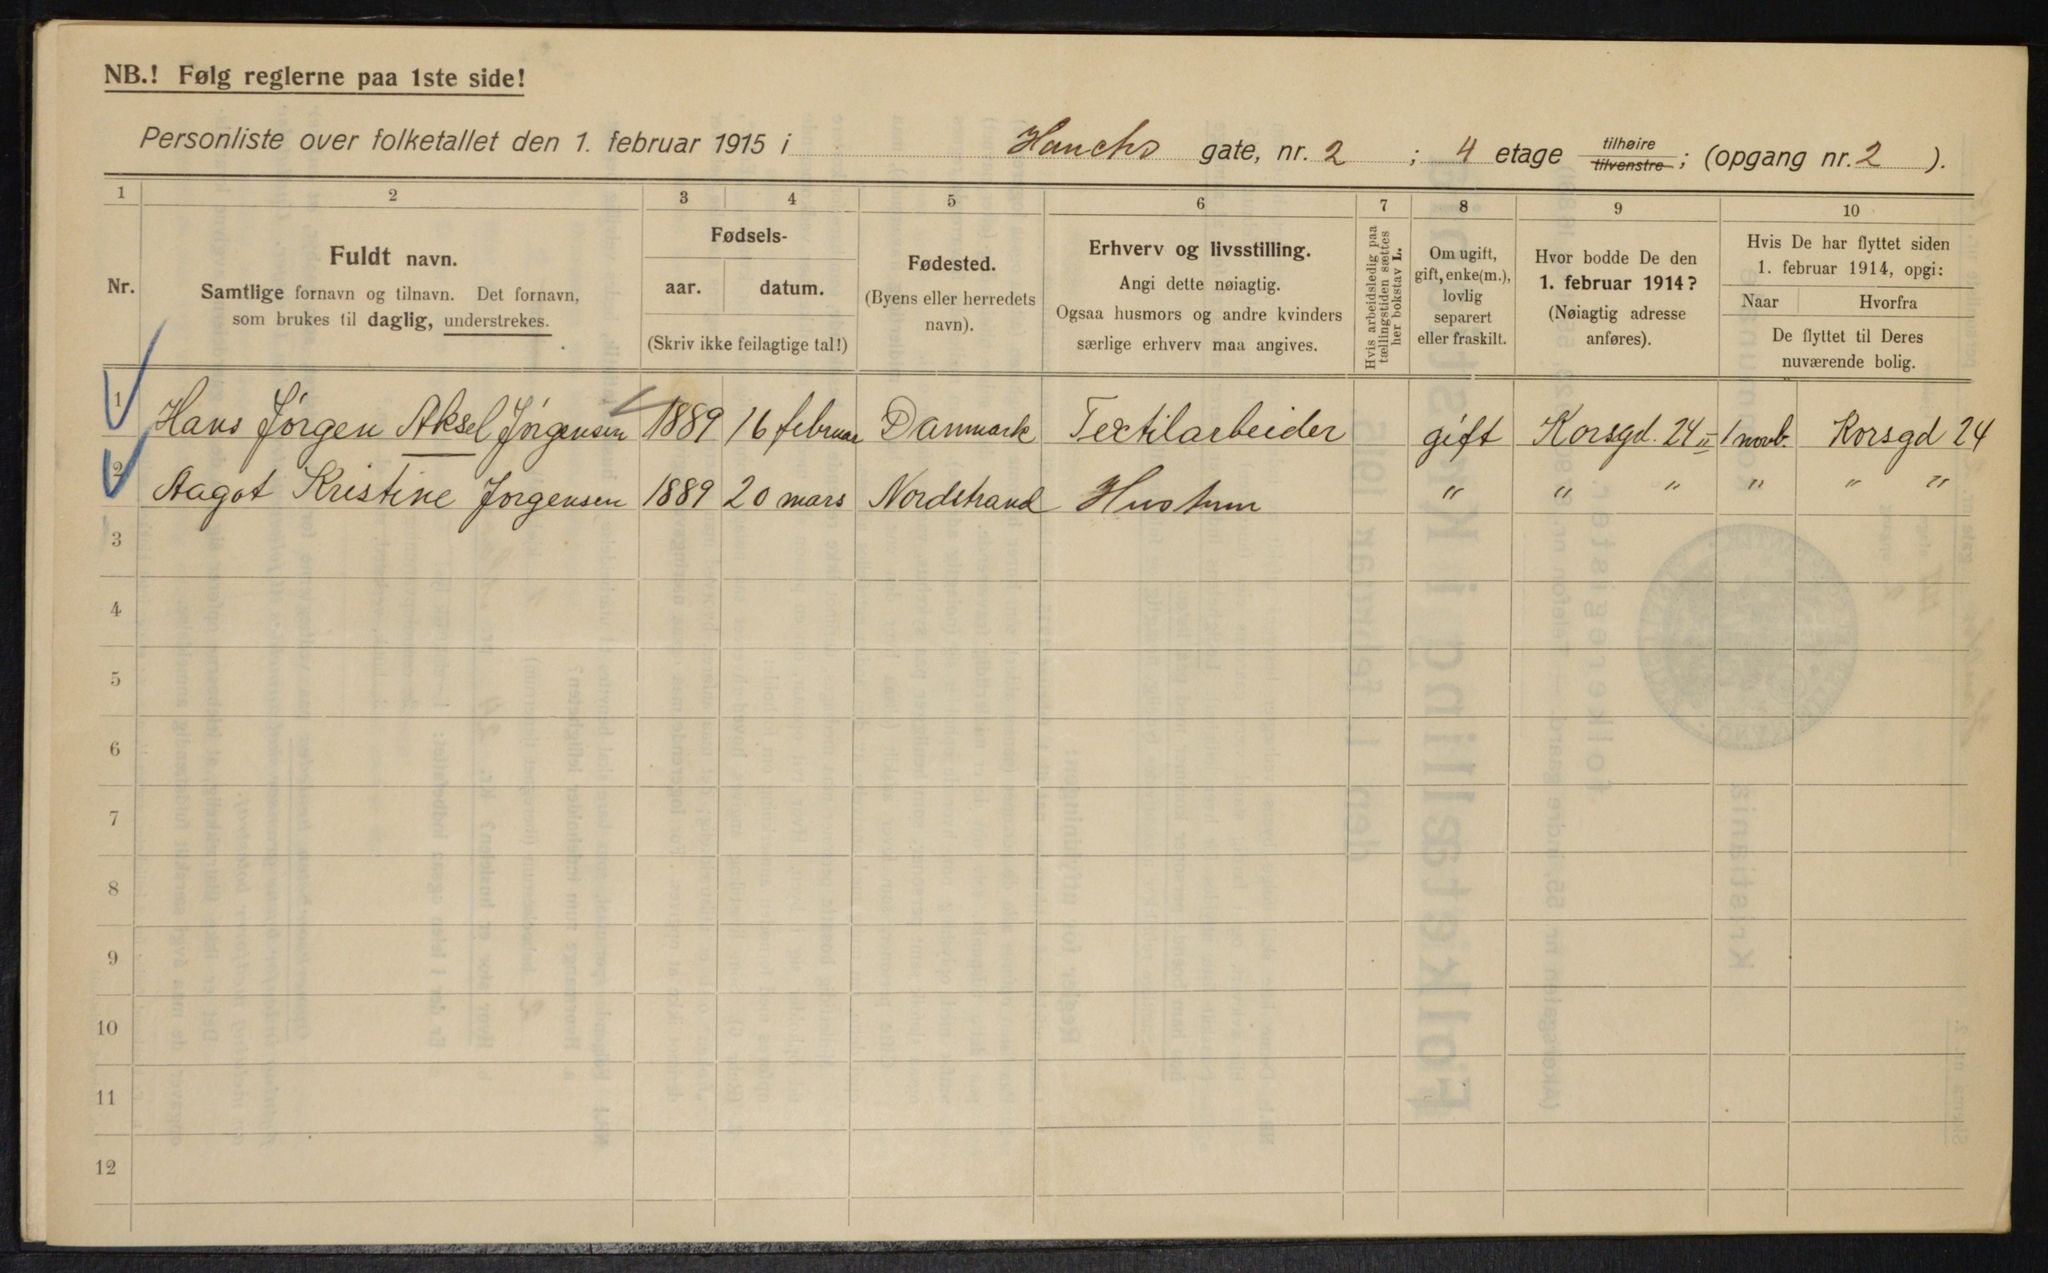 NB.! Følg reglerne paa 1ste side!
Personliste over folketallet den 1. februar 1915 i Hauchs gate, nr. 2 ; 4 etage tilhøire tilvenstre ; (opgang nr. 2 ).
1 2 3 4 5 6 7 8 9 10
Nr.
Fuldt navn.
Samtlige fornavn og tilnavn. Det fornavn,
som brukes til daglig, understrekes.
Fødsels-
aar. datum.
(Skriv ikke feilagtige tal!)
Fødested.
(Byens eller herredets
navn).
Erhverv og livsstilling.
Angi dette nøiagtig.
Ogsaa husmors og andre kvinders
særlige erhverv maa angives.
Hvis arbeidsledig paa
tællingstiden sættes
her bokstav L.
Om ugift,
gift, enke(m.),
lovlig
separert
eller fraskilt.
Hvor bodde De den
1. februar 1914?
(Nøiagtig adresse
anføres).
Hvis De har flyttet siden
1. februar 1914, opgi:
Naar Hvorfra
De flyttet til Deres
nuværende bolig.
1 Hans Jørgen Aksel Jørgensen 1889 16 februar Danmark Textilarbeider gift Korsgd. 24 II 1 novb. Korsgd 24
2 Aagot Kristine Jørgensen 1889 20 mars Nordstrand Hustrue " " " " " "
3
4
5
6
7
8
9
10
11
12